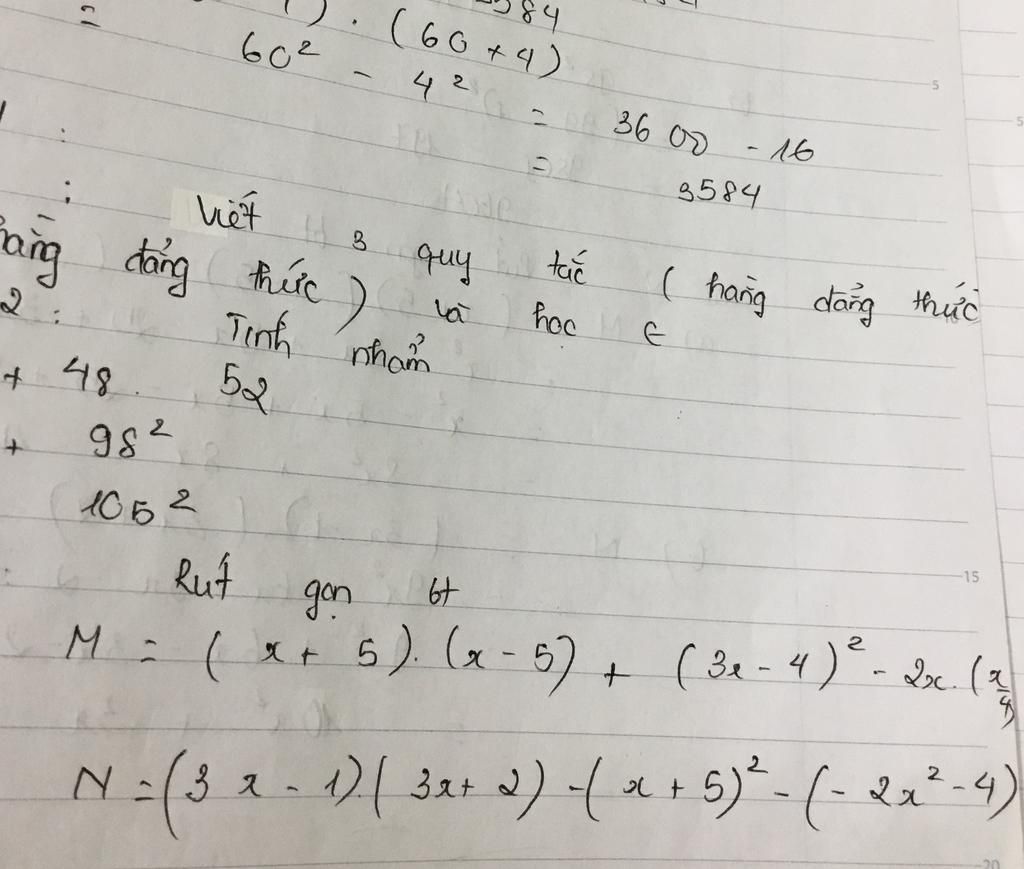 3584
= ) . (60 + 4)
60² - 4² = 3600 - 16
= 3584
:
: Viết 3 quy tắc ( hằng đẳng thức
hằng đẳng thức ) và học
2 : Tính nhẩm
+ 48 . 52
+ 98²
105²
: Rút gọn bt
M = ( x + 5 ) . ( x - 5 ) + ( 3x - 4 )² - 2x . ( x - 4 )
N = ( 3x - 1 ) . ( 3x + 2 ) - ( x + 5 )² - ( - 2x² - 4 )
5
5
15
20